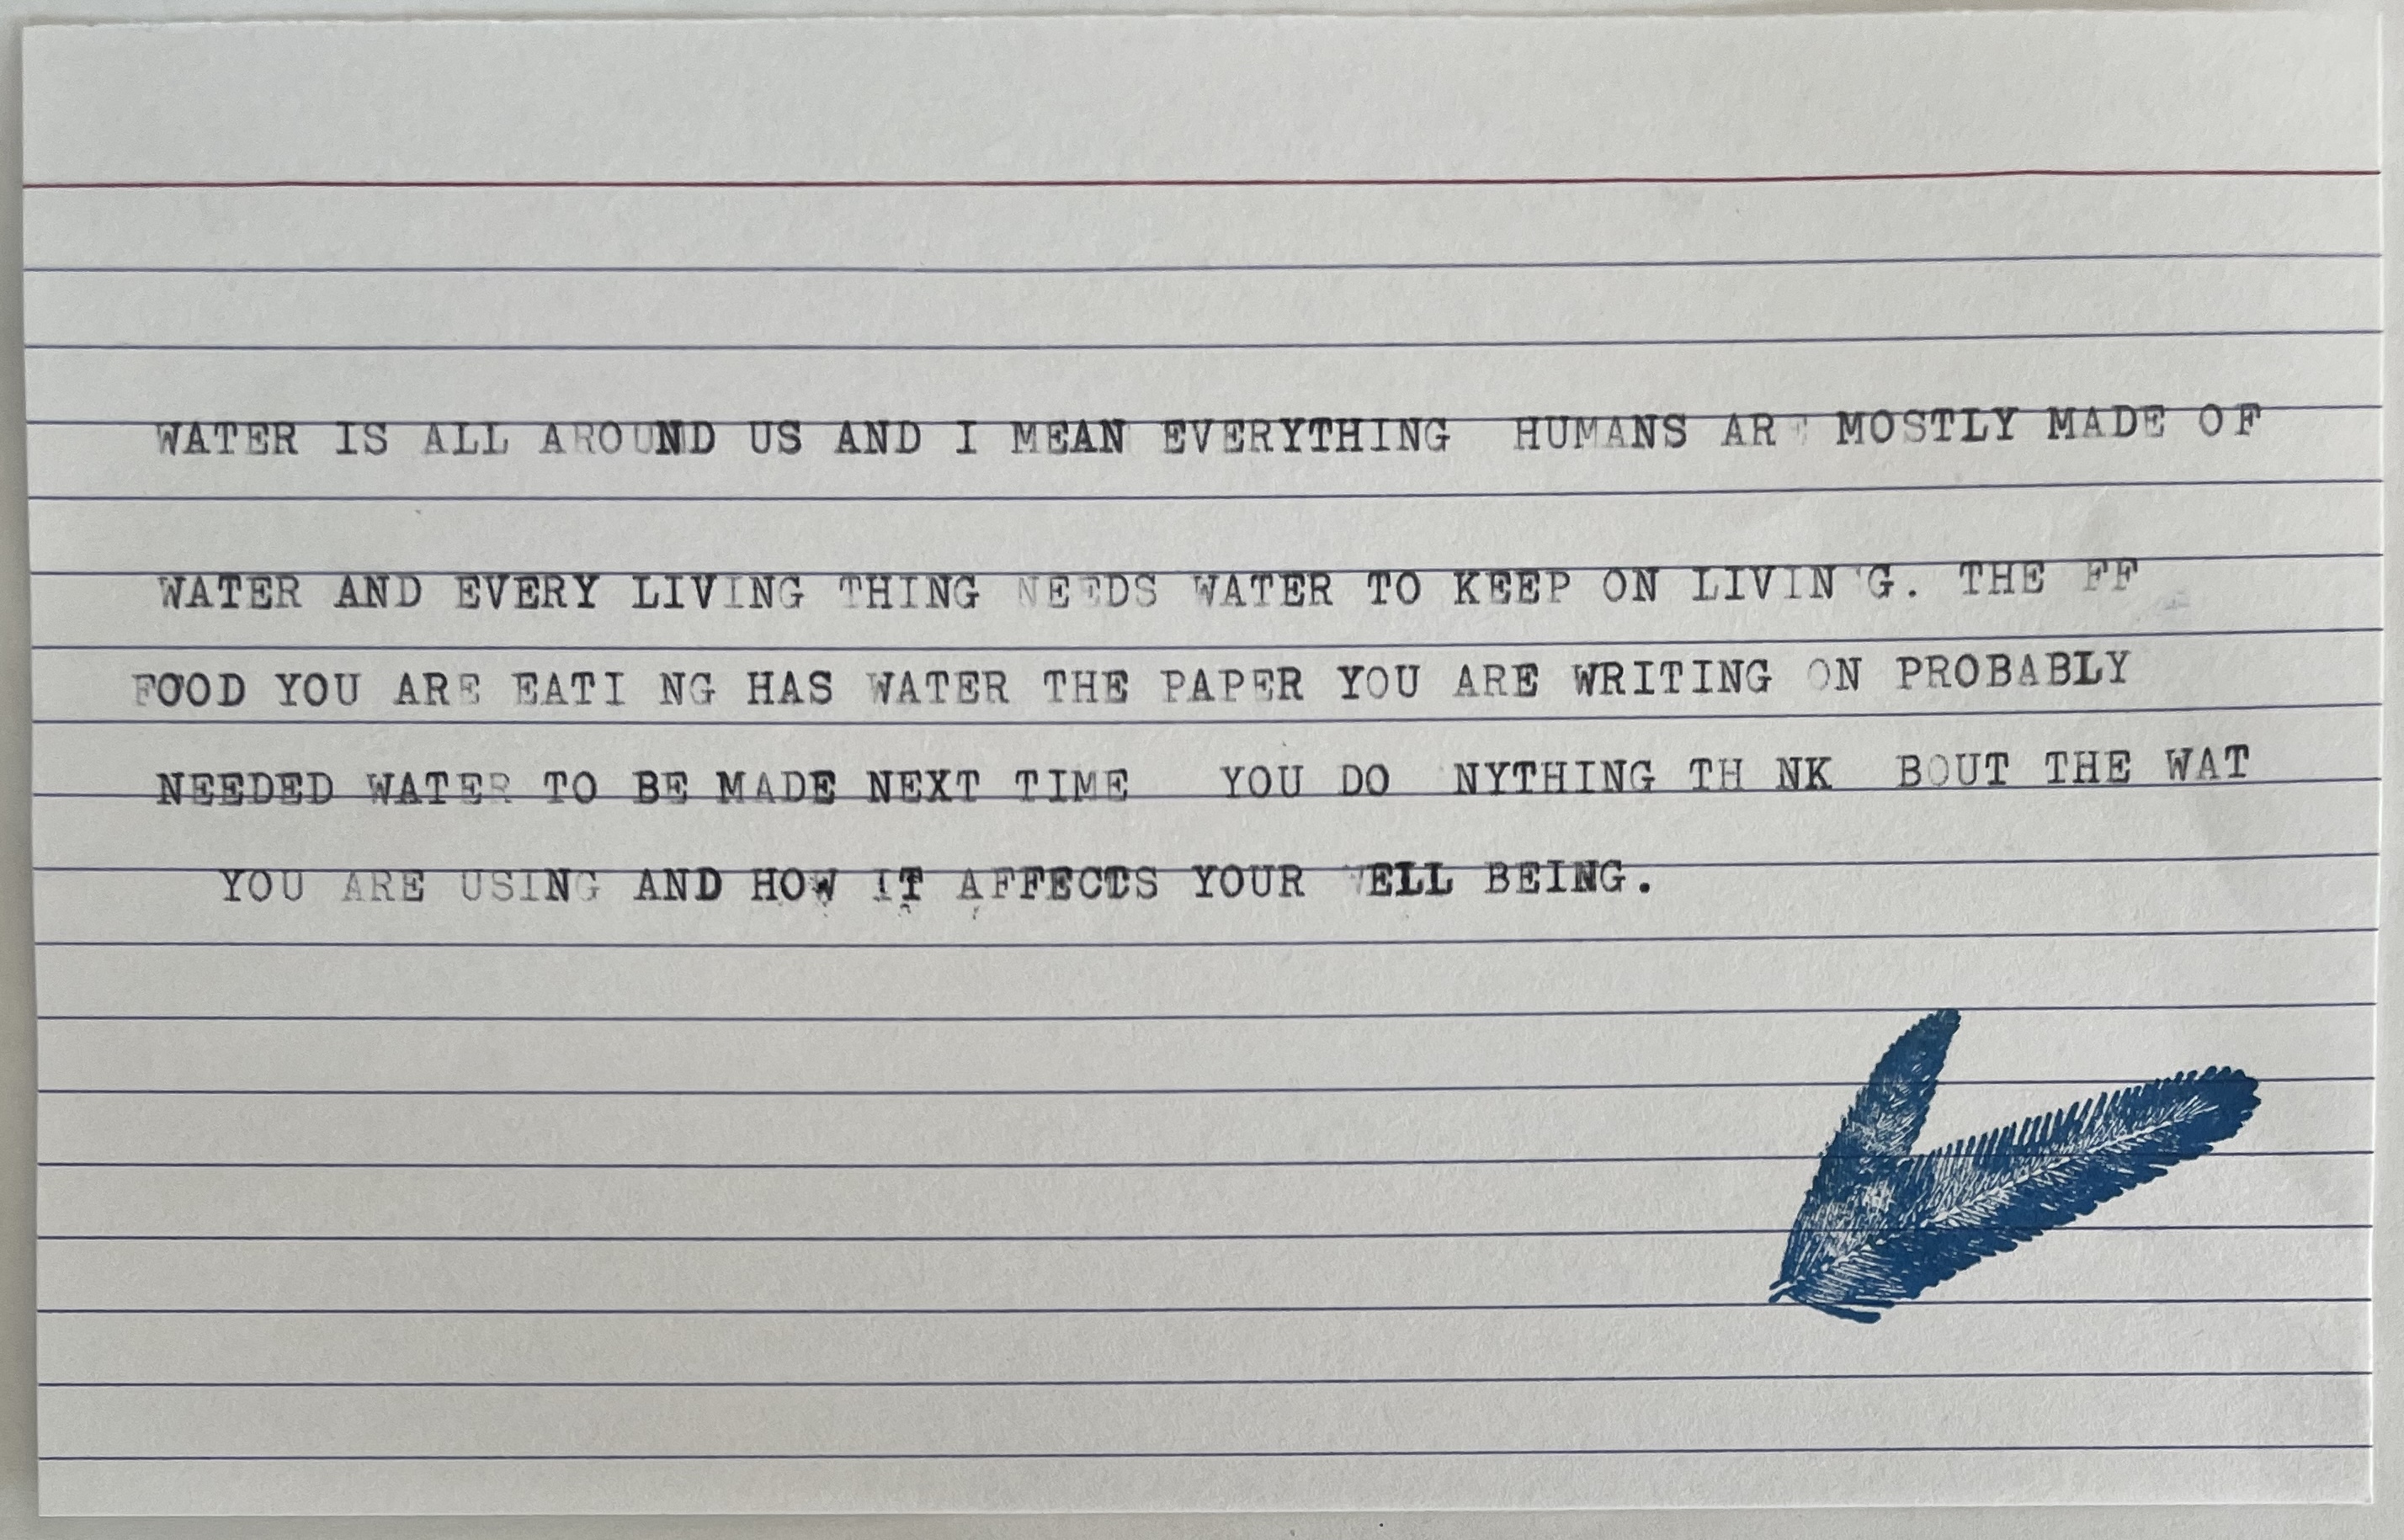 WATER IS ALL AROUND US AND I MEAN EVERYTHING  HUMANS ARE MOSTLY MADE OF
WATER AND EVERY LIVING THING NEEDS WATER TO KEEP ON LIVIN G. THE FF
FOOD YOU ARE EATI NG HAS WATER THE PAPER YOU ARE WRITING ON PROBABLY
NEEDED WATER TO BE MADE NEXT TIME   YOU DO  NYTHING TH NK  BOUT THE WAT
YOU ARE USING AND HOW IT AFFECTS YOUR WELL BEING.